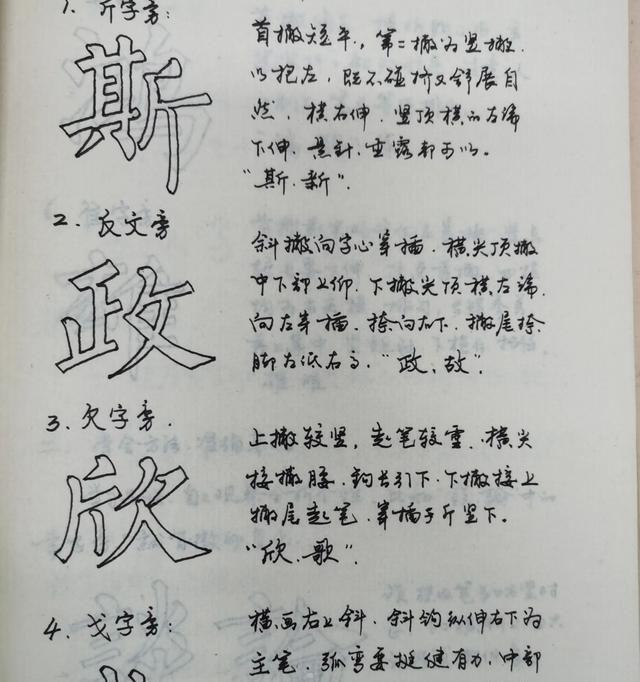 1. 斤字旁：
斯
首撇短平，第二撇为竖撇.
以抱左，既不碰挤又舒展自
然．横右伸．竖顶横的左端
下伸．悬针．垂露都可以。
“斯．新”．
2. 反文旁
政
斜撇向字心穿插．横尖顶撇
中下部上仰．下撇尖顶横左端.
向左穿插．捺向右下．撇尾捺
脚左低右高．“政、故”．
3. 欠字旁．
欣
上撇较竖，起笔较重．横尖
接撇腰．钩长引下．下撇接上
撇尾起笔．穿插于斤竖下。
“欣．歌”．
4. 戈字旁：
横画右上斜．斜钩纵伸右下为
主笔．弧弯要挺健有力．中部